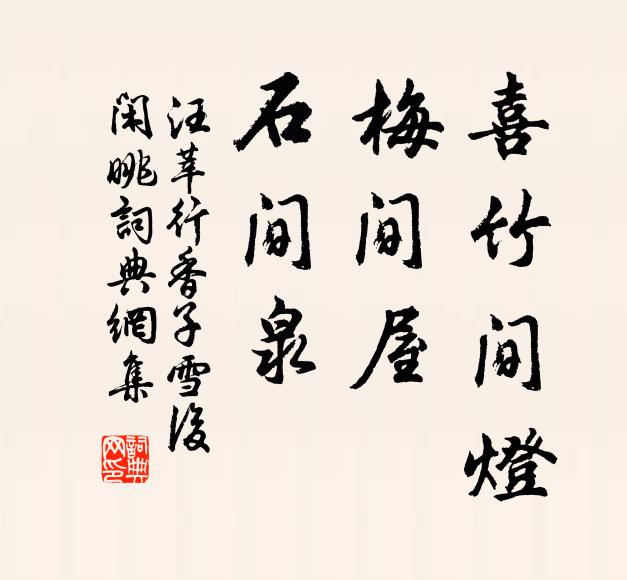 喜竹間燈
梅間屋
石間泉
汪莘行香子雪後
閑眺詞典網集
詞典网印